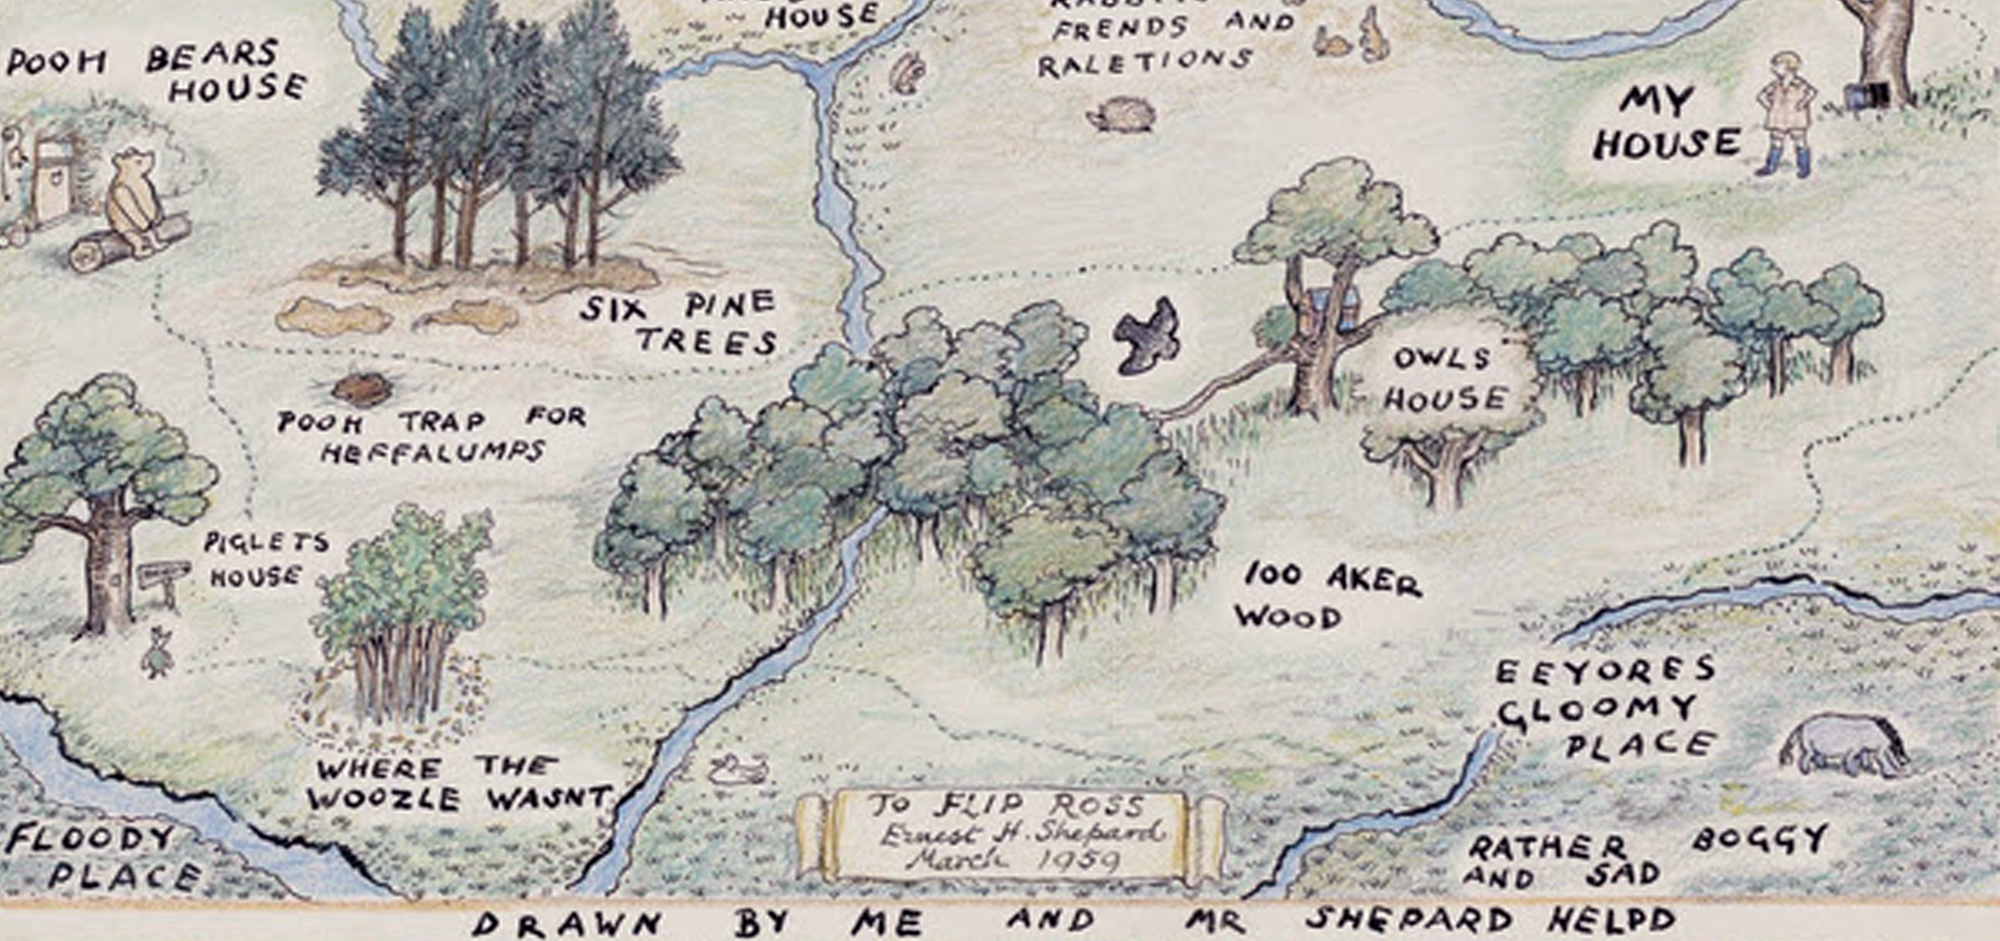 HOUSE
FRENDS AND
RALETIONS
POOH BEARS
HOUSE
MY
HOUSE
SIX PINE
TREES
OWLS
HOUSE
POOH TRAP FOR
HEFFALUMPS
PIGLETS
HOUSE
100 AKER
WOOD
EEYORES
GLOOMY
PLACE
WHERE THE
WOOZLE WASNT
TO FLIP ROSS
Ernest H. Shepard
March 1959
FLOODY
PLACE
RATHER BOGGY
AND SAD
DRAWN BY ME AND MR SHEPARD HELPD